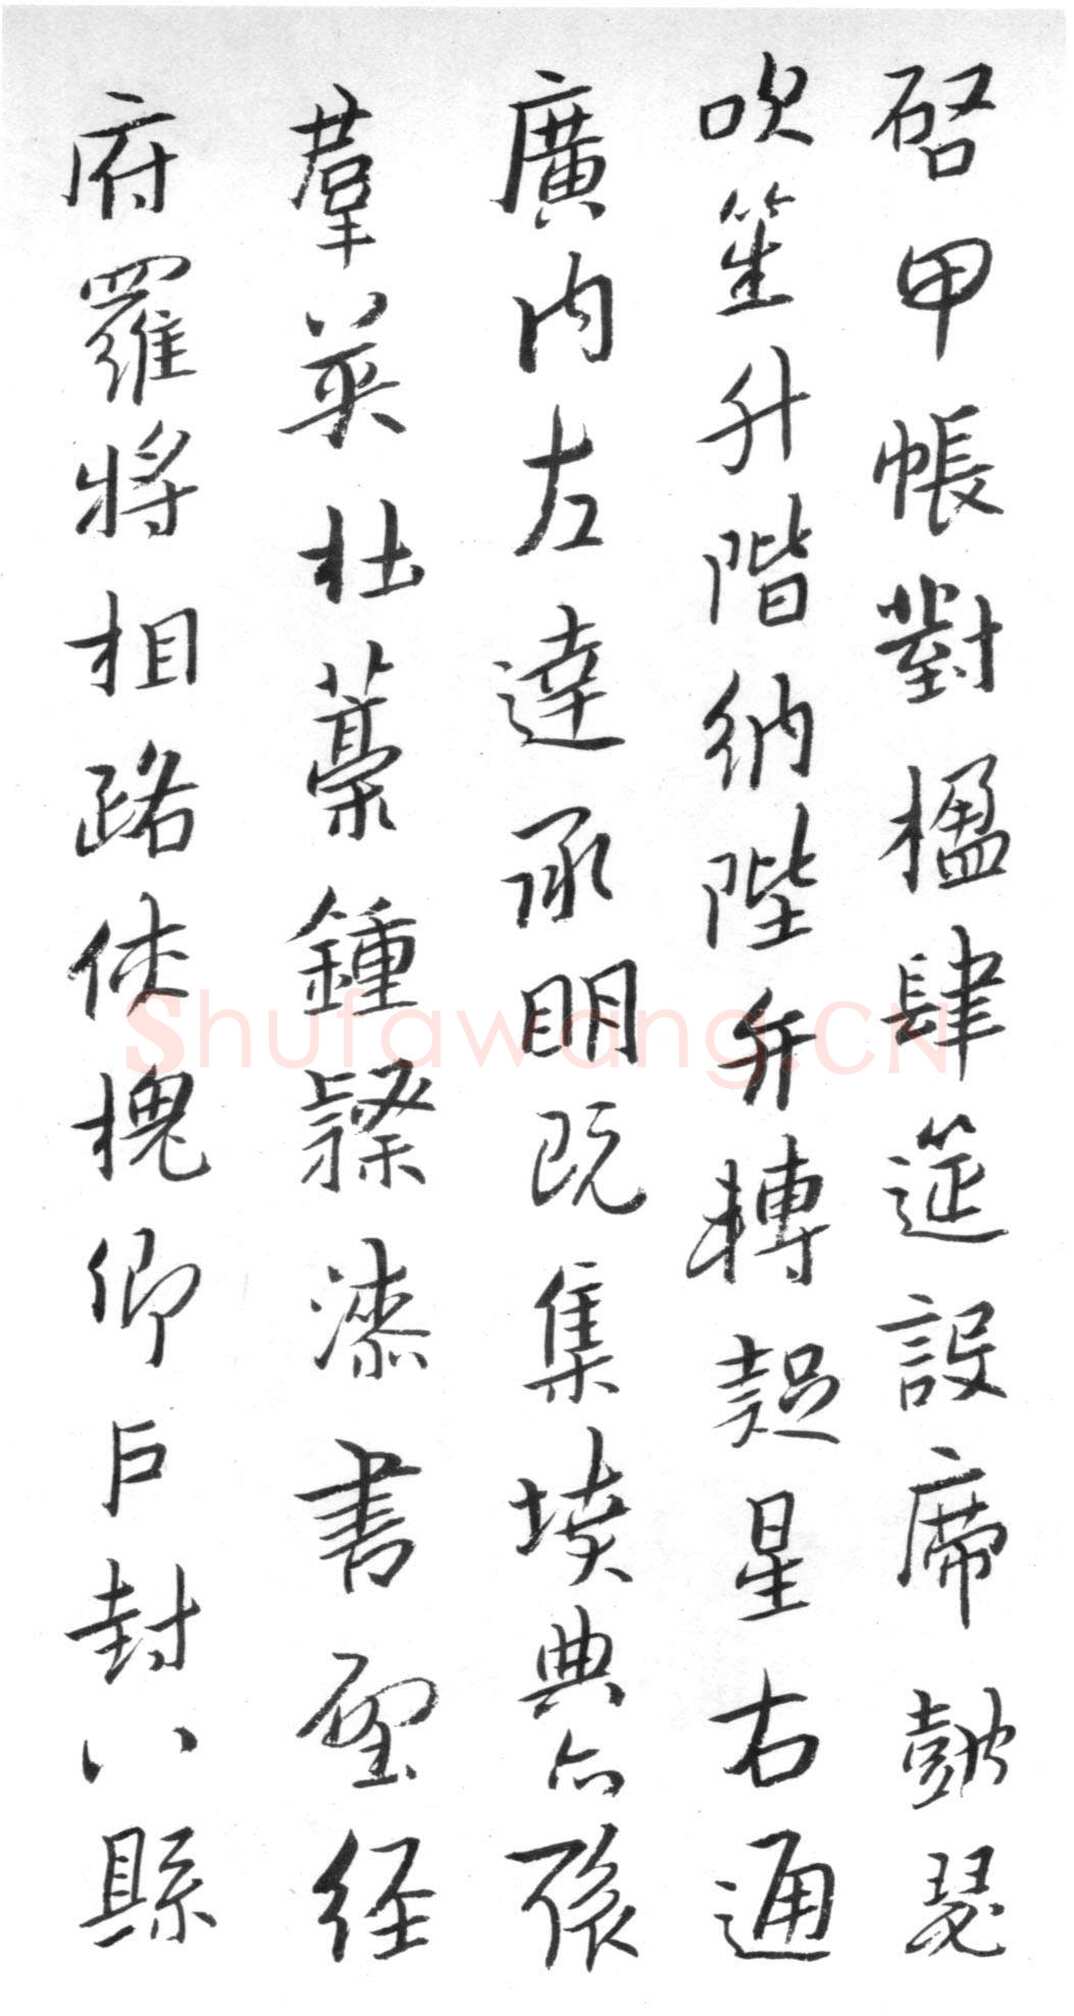 啓甲帳對楹肆筵設席鼓瑟
吹笙升階納陛弁轉疑星右通
廣内左達承明既集墳典亦聚
群英杜藁鍾隸漆書壁経
府羅將相路俠槐卿戶封八縣
Shufawang.CN